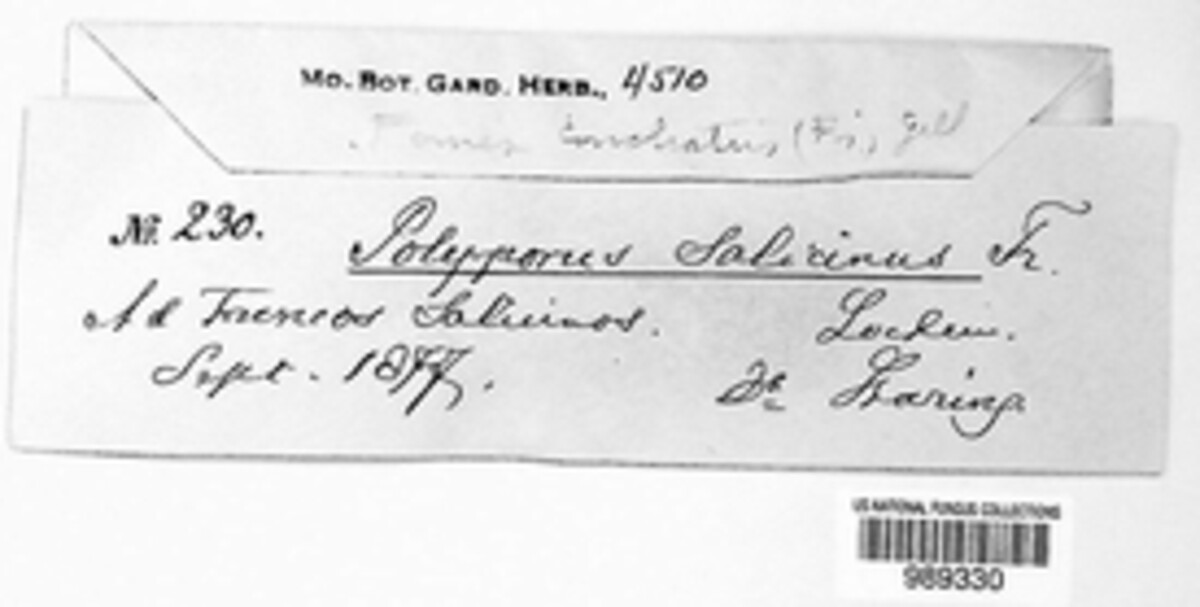 Mo. Bot. Gard. Herb., 4510
Fomes conchatus (Fr.) Gill
№ 230. Polyporus Salicinus Fr.
Ad Truncos Salicinos.
Sept. 1877.
US NATIONAL FUNGUS COLLECTIONS
989330